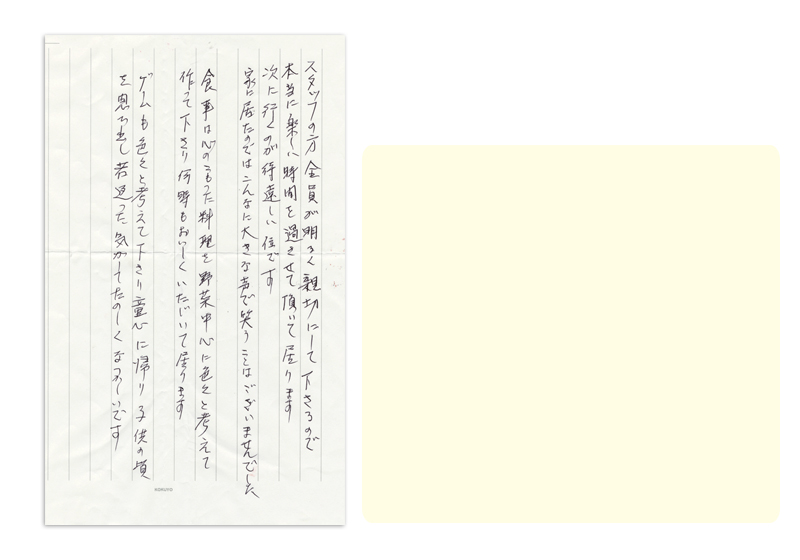 スタッフの方全員が明るく親切にして下さるので
本当に楽しい時間を過させて頂いて居ります
次に行くのが待遠しい位です
家に居たのではこんなに大きな声で笑うことはございませんでした
食事は心のこもった料理を野菜中心に色々と考えて
作って下さり何時もおいしくいただいて居ります
ゲームも色々と考えて下さり童心に帰り子供の頃
を思い出し若返った気がしてたのしくなつかしいです
KOKUYO